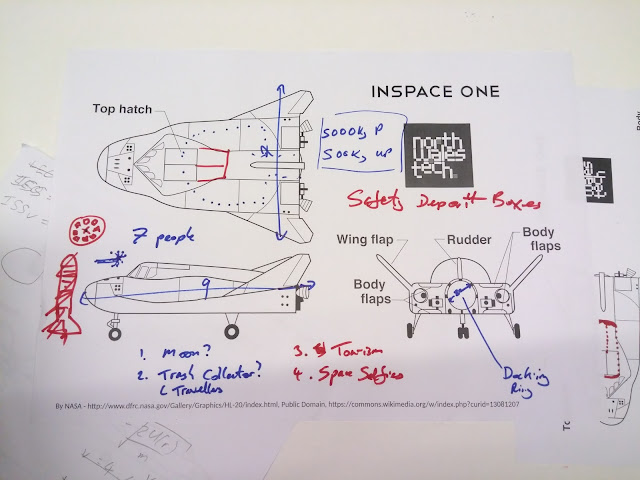 INSPACE ONE
Top hatch
5000kg
500kg up
north
wales
tech
Safety Deposit Boxes
7 people
Wing flap
Rudder
Body
flaps
Body
flaps
9
Docking
Ring
1. Moon?
2. Trash Collector?
3. Tourism
4. Space Selfies
By NASA - http://www.dfrc.nasa.gov/Gallery/Graphics/HL-20/index.html, Public Domain, https://commons.wikimedia.org/w/index.php?curid=13081207